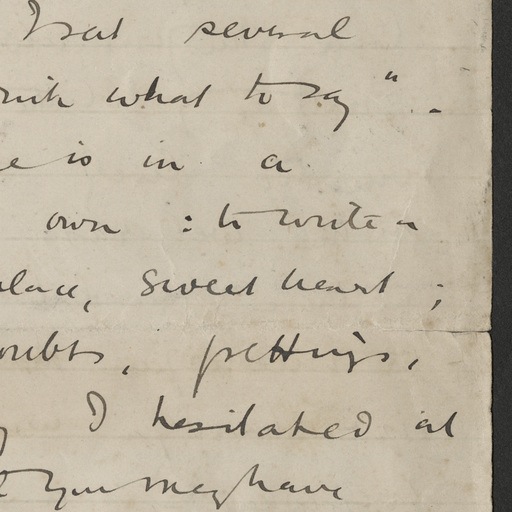 I sat several
what to say".
is in a
own : to write a
sweet heart ;
doubts, frettings,
I hesitated at
you may have